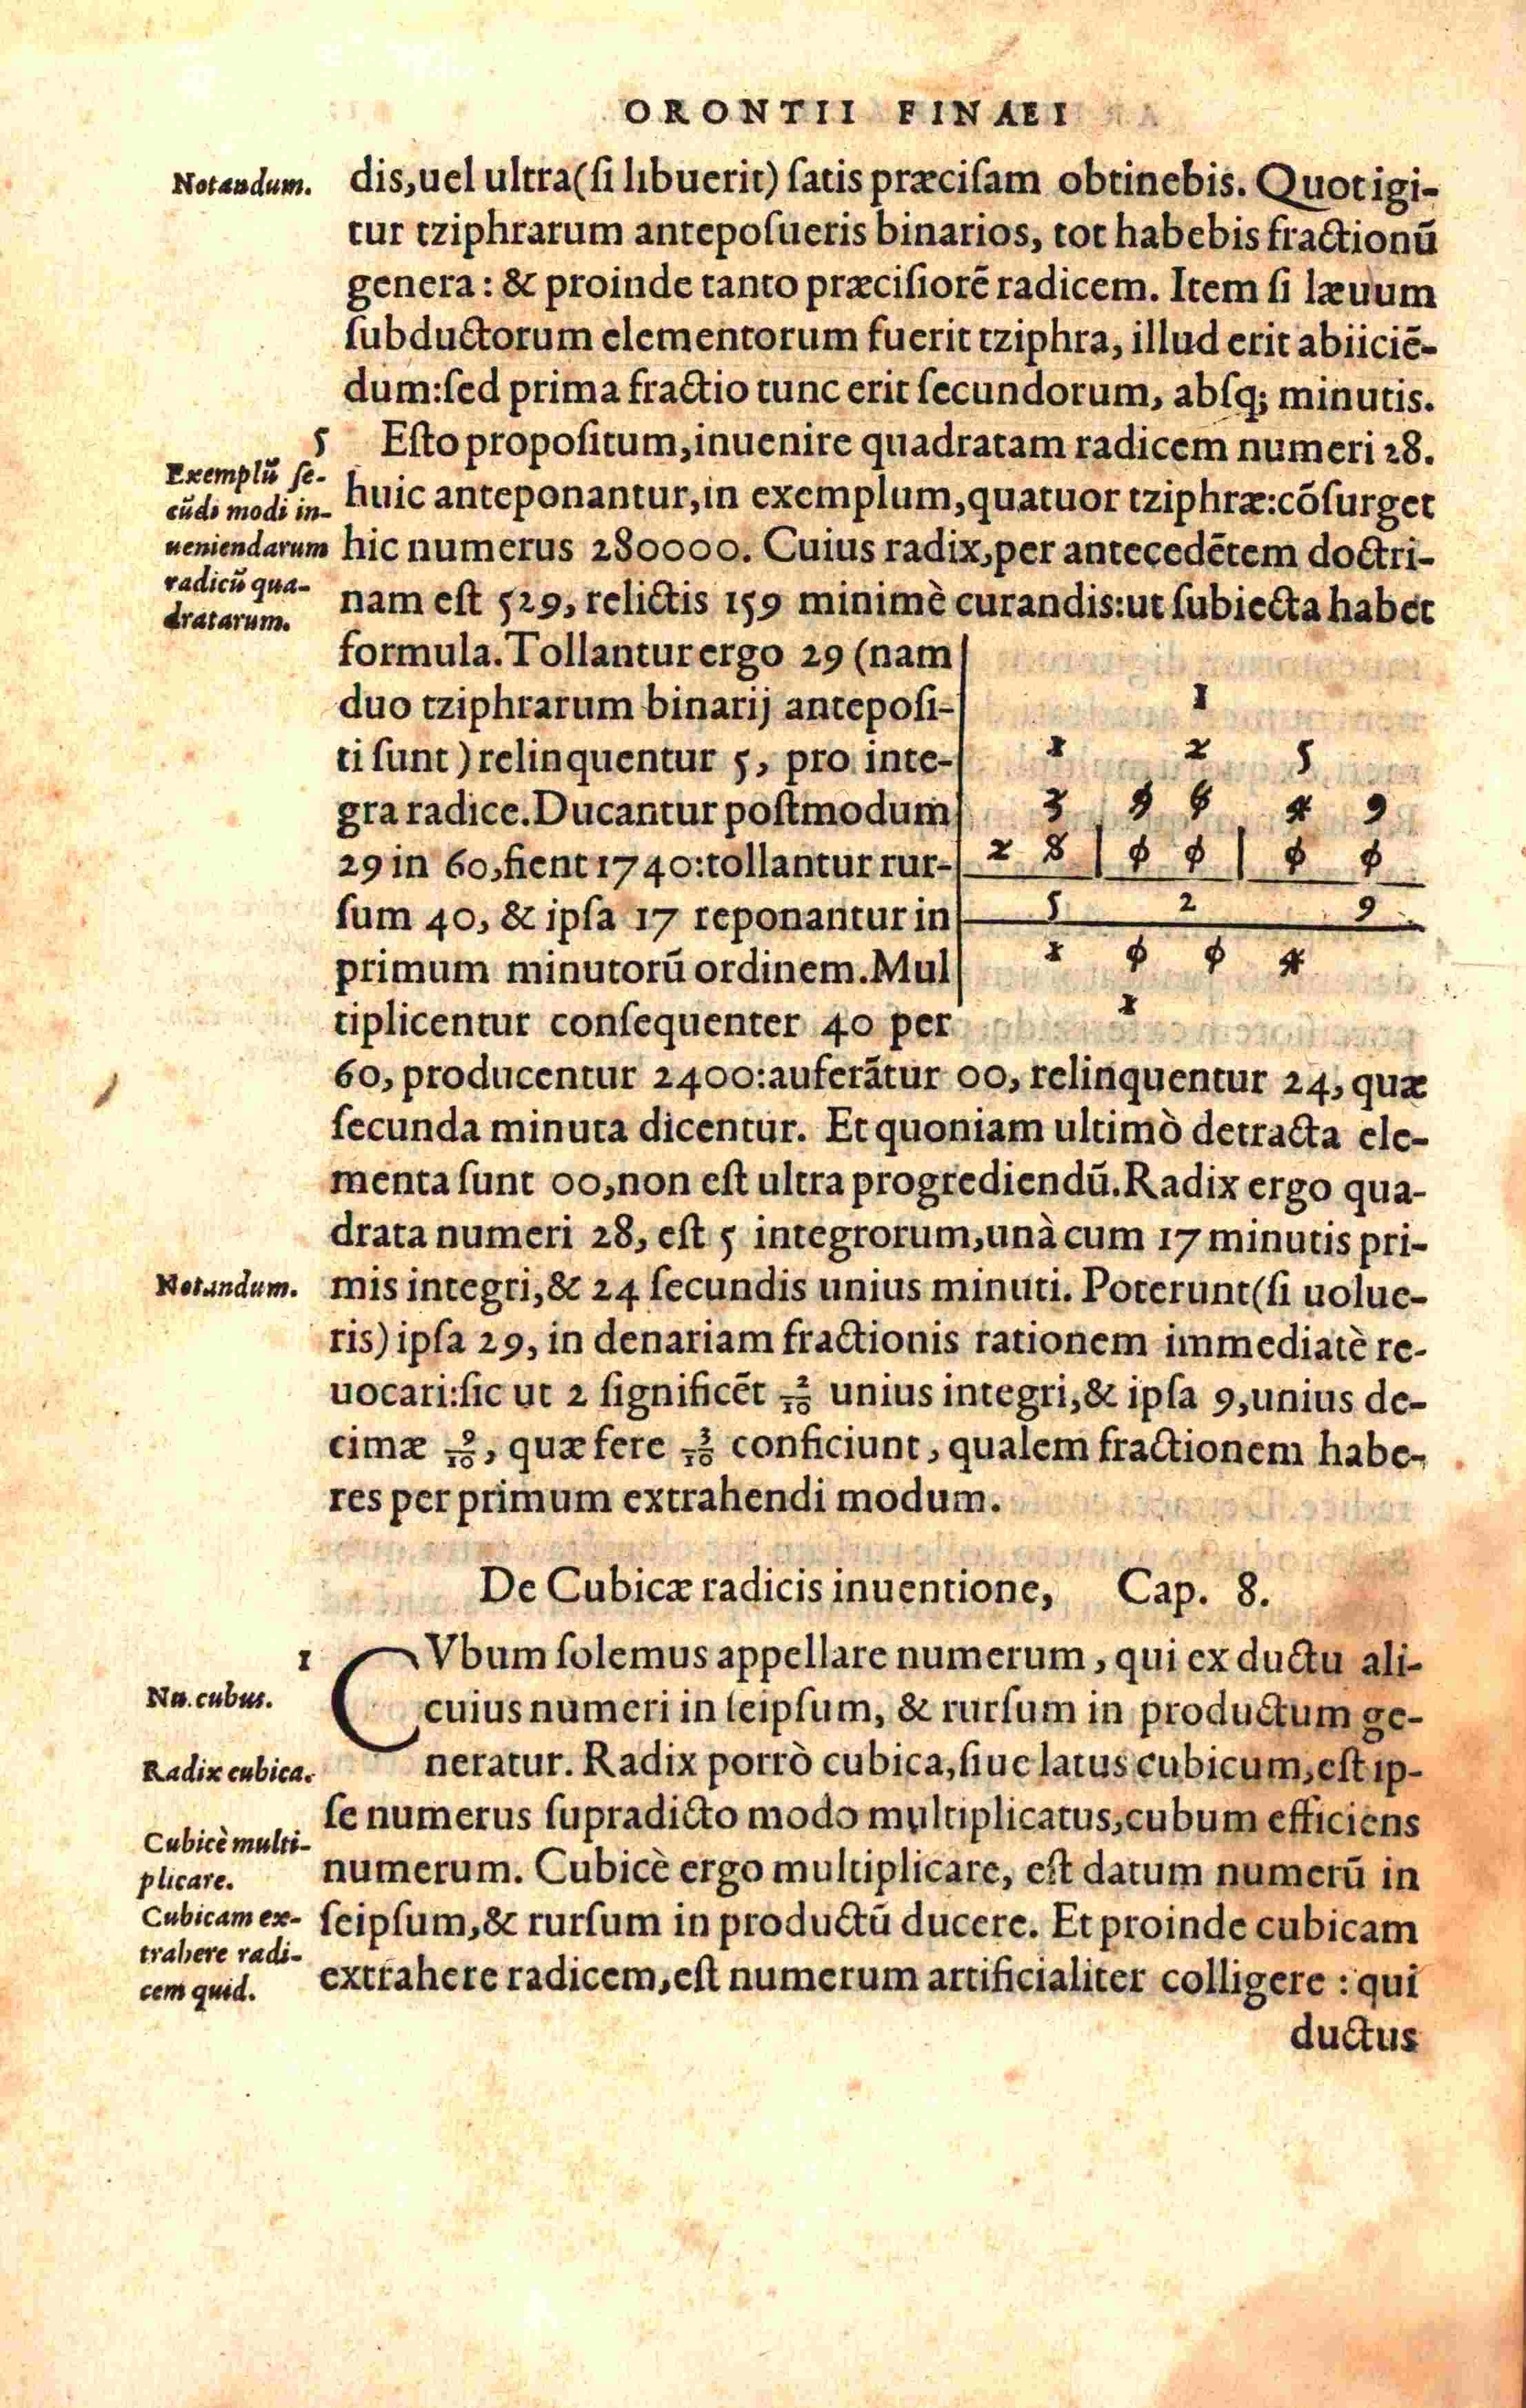 ORONTII FINAEI
Notandum.
dis,uel ultra(ſi libuerit) ſatis præciſam obtinebis. Quot igi-
tur tziphrarum antepoſueris binarios, tot habebis fractionū
genera: & proinde tanto præciſiorē radicem. Item ſi læuum
ſubductorum elementorum fuerit tziphra, illud erit abiiciē-
dum:ſed prima fractio tunc erit ſecundorum, abſq; minutis.
5 Eſto propoſitum,inuenire quadratam radicem numeri 28.
Exemplū ſe-
cūdi modi in-
ueniendarum
radicū qua-
dratarum.
huic anteponantur,in exemplum,quatuor tziphræ:cōſurget
hic numerus 280000. Cuius radix,per antecedētem doctri-
nam eſt 529, relictis 159 minimè curandis:ut ſubiecta habet
formula.Tollantur ergo 29 (nam
duo tziphrarum binarij antepoſi-
ti ſunt) relinquentur 5, pro inte-
gra radice.Ducantur poſtmodum
29 in 60,fient 1740:tollantur rur-
ſum 40, & ipſa 17 reponantur in
primum minutorū ordinem.Mul
tiplicentur conſequenter 40 per
1
1 2 5
3 9 6 4 9
2 8 | 0 0 | 0 0
5 2 9
1 0 0 4
1
60, producentur 2400:auferātur 00, relinquentur 24, quæ
ſecunda minuta dicentur. Et quoniam ultimò detracta ele-
menta ſunt 00,non eſt ultra progrediendū.Radix ergo qua-
drata numeri 28, eſt 5 integrorum,unà cum 17 minutis pri-
Notandum.
mis integri,& 24 ſecundis unius minuti. Poterunt(ſi uolue-
ris) ipſa 29, in denariam fractionis rationem immediatè re-
uocari:ſic ut 2 ſignificēt 2/10 unius integri,& ipſa 9,unius de-
cimæ 9/10, quæ fere 3/10 conficiunt, qualem fractionem habe-
res per primum extrahendi modum.
De Cubicæ radicis inuentione, Cap. 8.
1 CVbum ſolemus appellare numerum, qui ex ductu ali-
Nu. cubus.
cuius numeri in ſeipſum, & rurſum in productum ge-
Radix cubica.
neratur. Radix porrò cubica,ſiue latus cubicum,eſt ip-
ſe numerus ſupradicto modo multiplicatus,cubum efficiens
Cubicè multi-
plicare.
numerum. Cubicè ergo multiplicare, eſt datum numerū in
Cubicam ex-
trahere radi-
cem quid.
ſeipſum,& rurſum in productū ducere. Et proinde cubicam
extrahere radicem,eſt numerum artificialiter colligere : qui
ductus